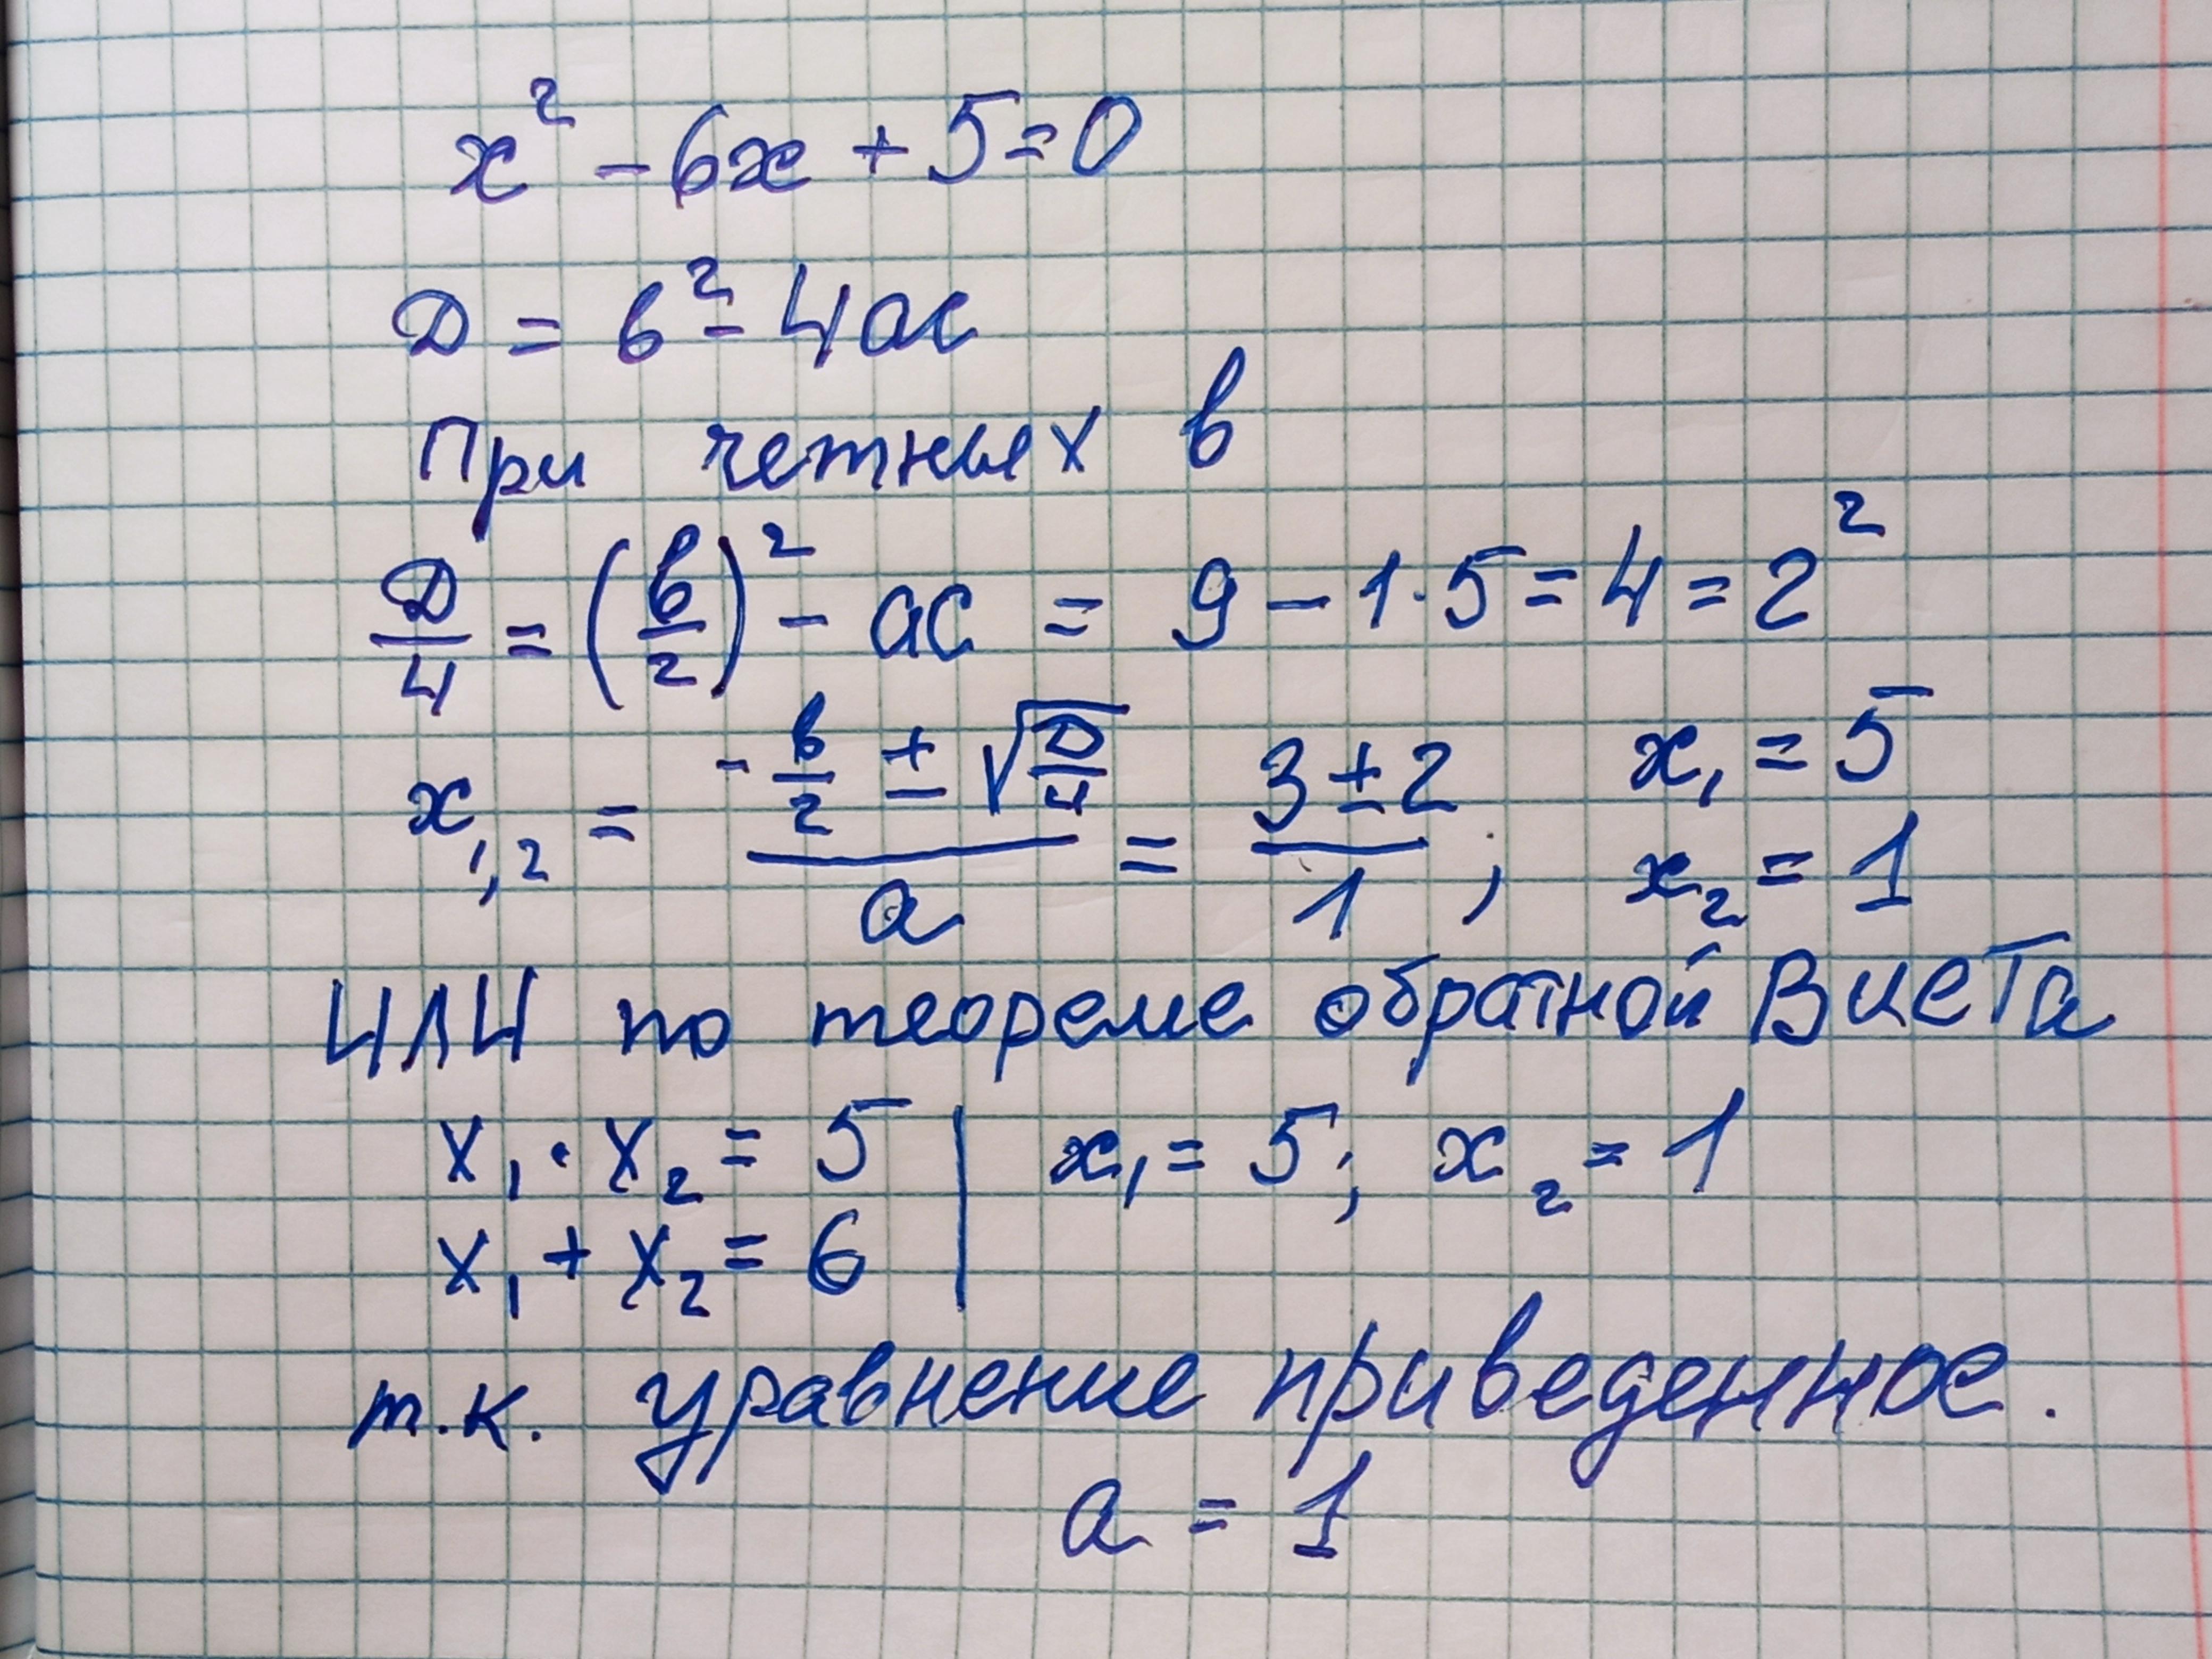 x² - 6x + 5 = 0
D = b² - 4ac
При четных b
D/4 = (b/2)² - ac = 9 - 1·5 = 4 = 2²
x₁,₂ = (-b/2 ± √(D/4))/a = (3 ± 2)/1 ; x₁ = 5
x₂ = 1
ИЛИ по теореме обратной Виета
x₁ · x₂ = 5 | x₁ = 5; x₂ = 1
x₁ + x₂ = 6
т.к. уравнение приведенное.
a = 1